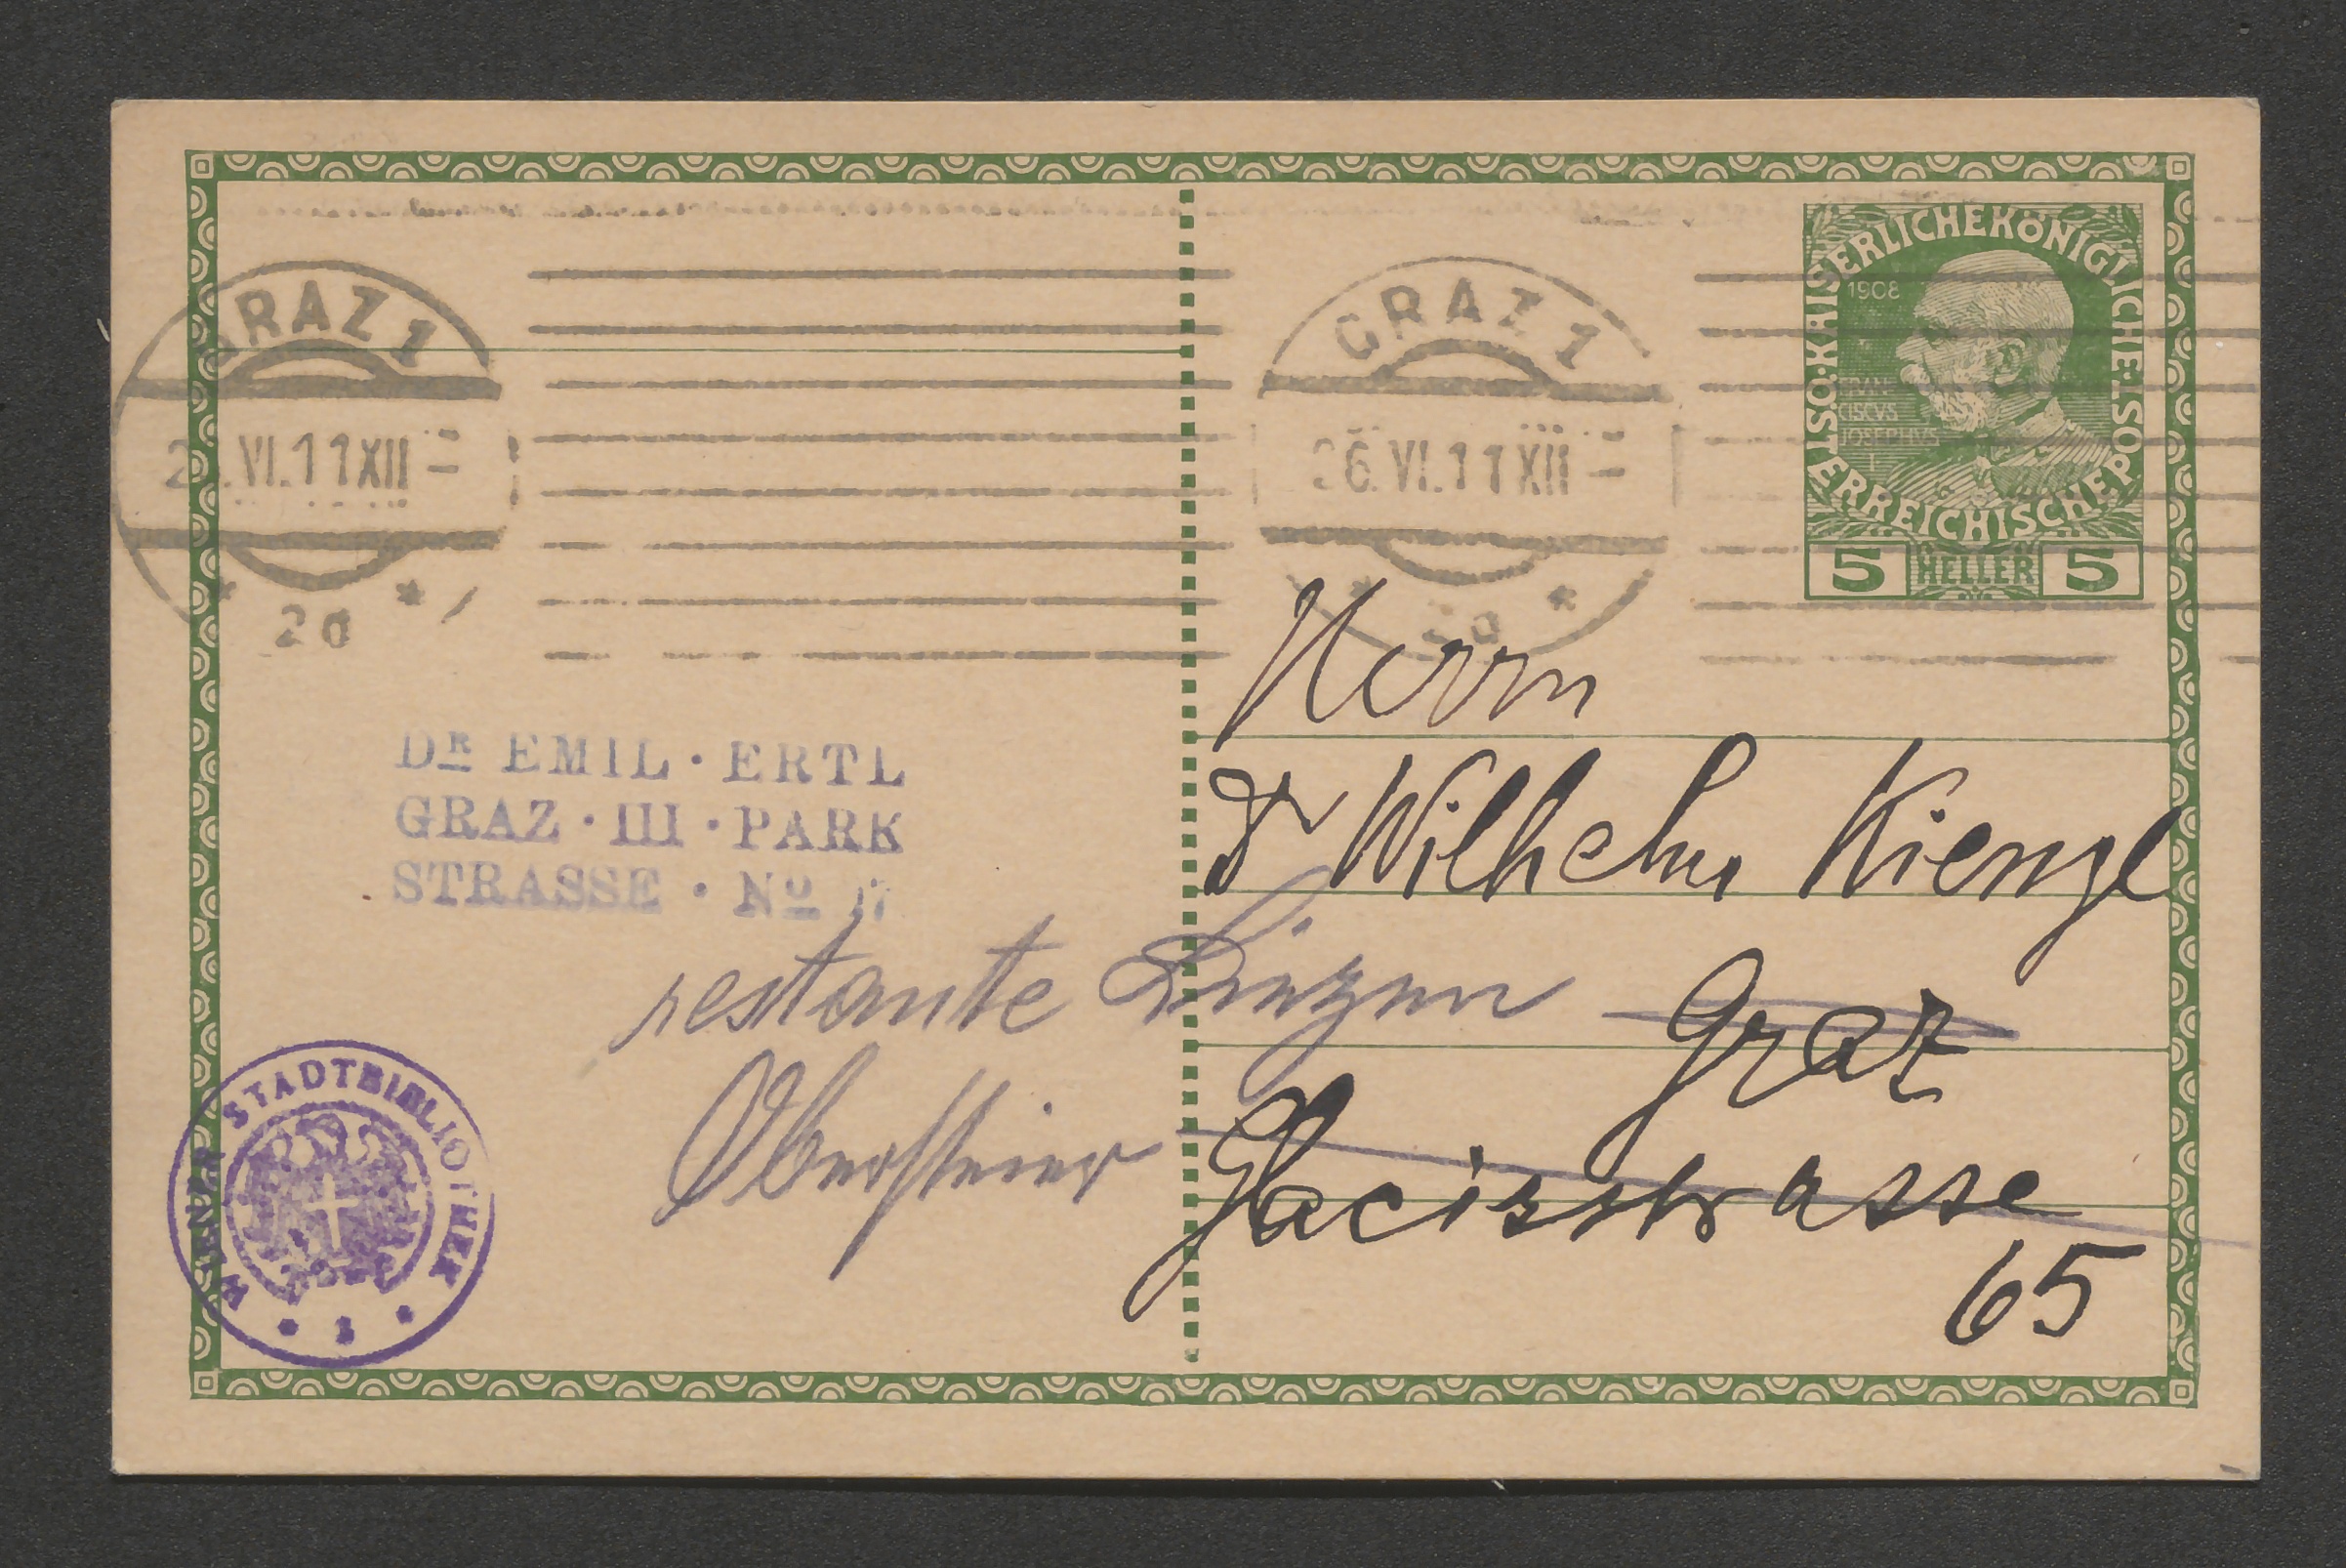 GRAZ 1
VI.11 XII
2a
GRAZ 1
26.VI.11 XII
2a
KAISERLICHE KÖNIGLICHE ÖSTERREICHISCHE POST
1908
FRAN
CISCVS
JOSEPHVS
I
5 HELLER 5
DR EMIL · ERTL
GRAZ · III · PARK
STRASSE · No
Herrn
Dr Wilhelm Kienzl
Graz
Glacisstrasse
65
restante Liezen
Obersteier
WIENER STADTBIBLIOTHEK